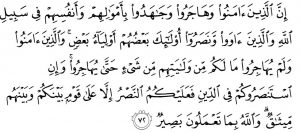 إِنَّ ٱلَّذِينَ ءَامَنُوا۟ وَهَاجَرُوا۟ وَجَـٰهَدُوا۟ بِأَمْوَٰلِهِمْ وَأَنفُسِهِمْ فِى سَبِيلِ
ٱللَّهِ وَٱلَّذِينَ ءَاوَوا۟ وَّنَصَرُوٓا۟ أُو۟لَـٰٓئِكَ بَعْضُهُمْ أَوْلِيَآءُ بَعْضٍ ۚ وَٱلَّذِينَ ءَامَنُوا۟
وَلَمْ يُهَاجِرُوا۟ مَا لَكُم مِّن وَلَـٰيَتِهِم مِّن شَىْءٍ حَتَّىٰ يُهَاجِرُوا۟ ۚ وَإِنِ
ٱسْتَنصَرُوكُمْ فِى ٱلدِّينِ فَعَلَيْكُمُ ٱلنَّصْرُ إِلَّا عَلَىٰ قَوْمٍۭ بَيْنَكُمْ وَبَيْنَهُم
مِّيثَـٰقٌ ۗ وَٱللَّهُ بِمَا تَعْمَلُونَ بَصِيرٌ ٧٢